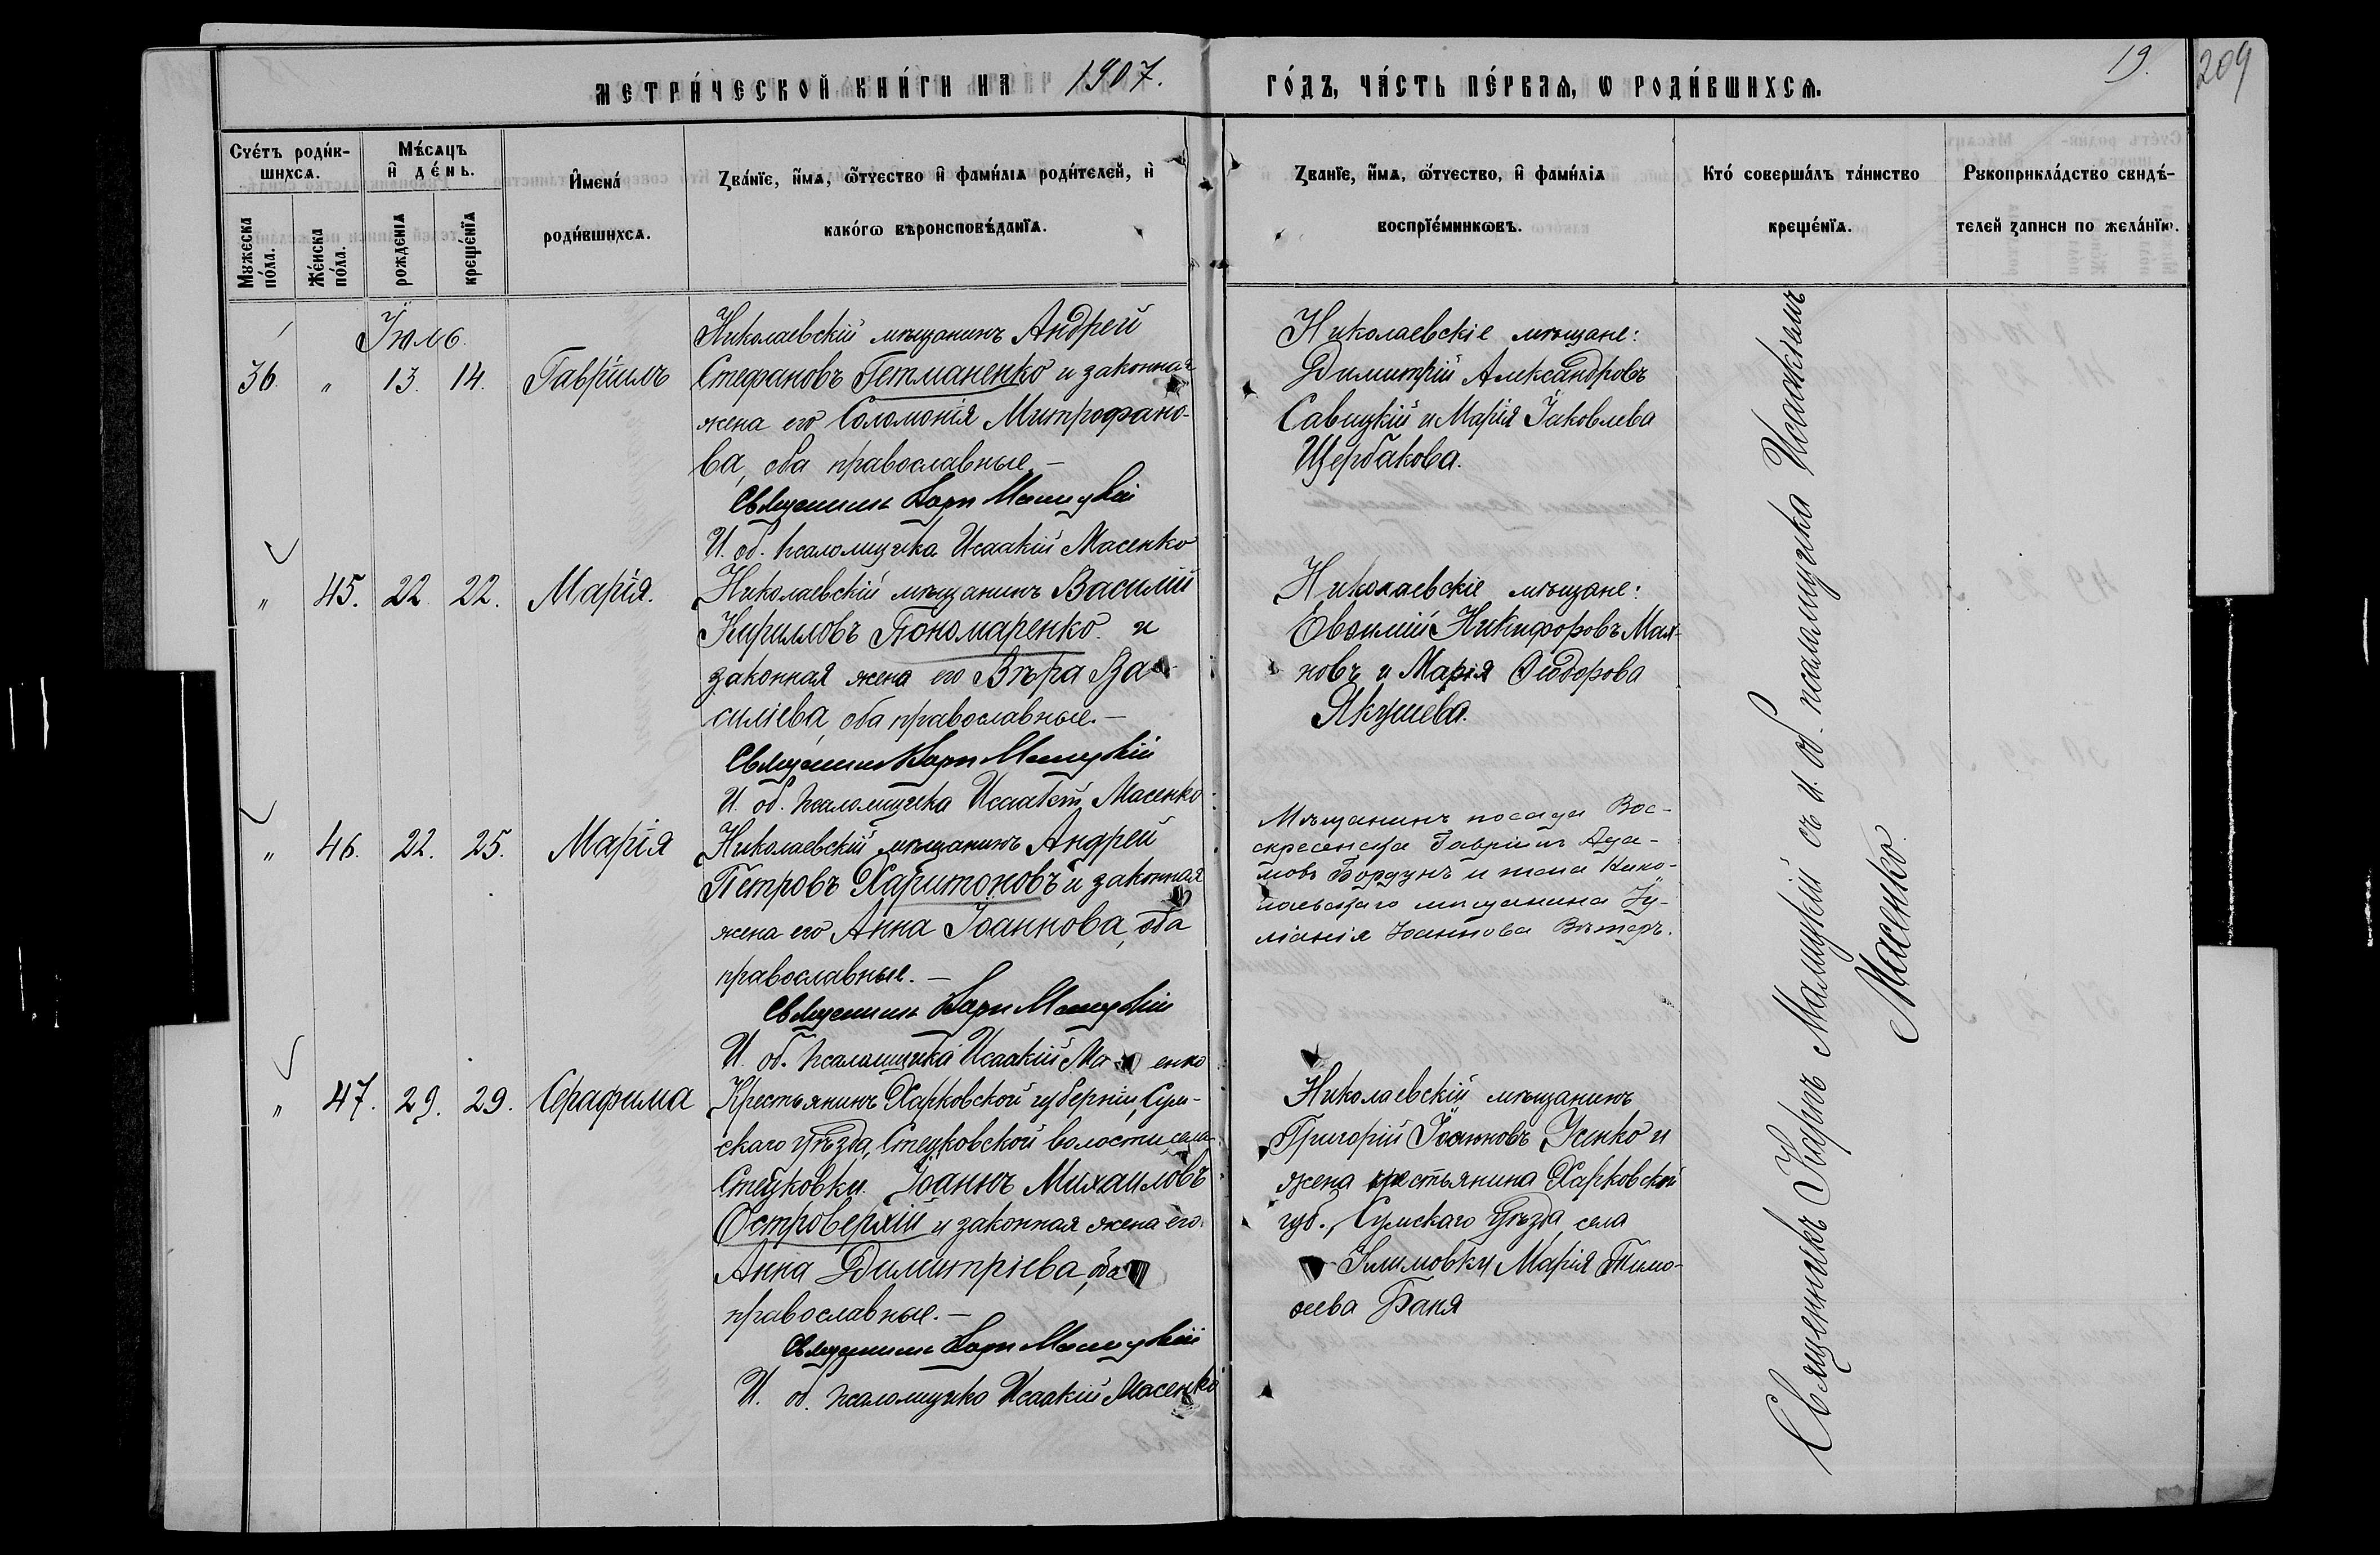 МЕТРИ́ЧЕСКОЙ КНИ́ГИ НА 1907.
ГО́ДЪ, ЧА́СТЬ ПЕ́РВАѦ, Ѡ РОДИ́ВШИХСѦ.
19.
209
Сче́тъ роди́в-
шихсѧ.
Мꙋжеска по́ла.
Же́нска по́ла.
Мѣ́сѧцъ
и҆ де́нь.
рожде́нїѧ
креще́нїѧ
И҆мена́
роди́вшихсѧ.
Ꙁва́нїе, и҆́мѧ, ѻ҆́тчество и҆ фами́лїѧ роди́телей, и҆
како́гѡ вѣроисповѣ́данїѧ.
Ꙁванїе, и҆́мѧ, ѻ҆́тчество, и҆ фами́лїѧ
воспрїе́мникѡвъ.
Кто́ соверша́лъ та́инство
креще́нїѧ.
Рꙋкоприкла́дство свидѣ́-
телей ꙁаписи по жела́нїю.
Іюль.
36. " 13. 14. Гавріилъ
Николаевскій мѣщанинъ Андрей
Стефановъ Гетманенко и законная
жена его Соломонія Митрофано-
ва, оба православные.—
Священникъ Карпъ Малицкій
И. об. псаломщика Исаакій Масенко
Николаевскіе мѣщане:
Димитрій Александровъ
Савицкій и Марія Іаковлева
Щербакова.
" 45. 22. 22. Марія.
Николаевскій мѣщанинъ Василій
Кирилловъ Пономаренко и
законная жена его Вѣра Ва-
силіева, оба православные.—
Священникъ Карпъ Малицкій
И. об. псаломщика Исаакій Масенко
Николаевскіе мѣщане:
Евѳимій Никифоровъ Мах-
новъ и Марія Ѳеодорова
Якушева.
" 46. 22. 25. Марія
Николаевскій мѣщанинъ Андрей
Петровъ Харитоновъ и законная
жена его Анна Іоаннова, оба
православные.—
Священникъ Карпъ Малицкій
И. об. псаломщика Исаакій Ма енко
Мѣщанинъ посада Вос-
скресенска Гавріилъ Ада-
мовъ Бордунъ и жена Нико-
лаевскаго мѣщанина Іу-
ліанія Іоаннова Вѣтеръ.
" 47. 29. 29. Серафима
Крестьянинъ Харковской губерніи, Сум-
скаго уѣзда, Стецковской волости, села
Стецковки Іоаннъ Михаиловъ
Островерхій и законная жена его
Анна Димитріева, оба
православные.—
Священникъ Карпъ Малицкій
И. об. псаломщика Исаакій Масенко
Николаевскій мѣщанинъ
Григорій Іоанновъ Усенко и
жена крестьянина Харковской
губ., Сумскаго уѣзда, села
Климовки Марія Тимо-
ѳеева Баня
Священникъ Карпъ Малицкій съ и. об. псаломщика Исаакіемъ
Масенко